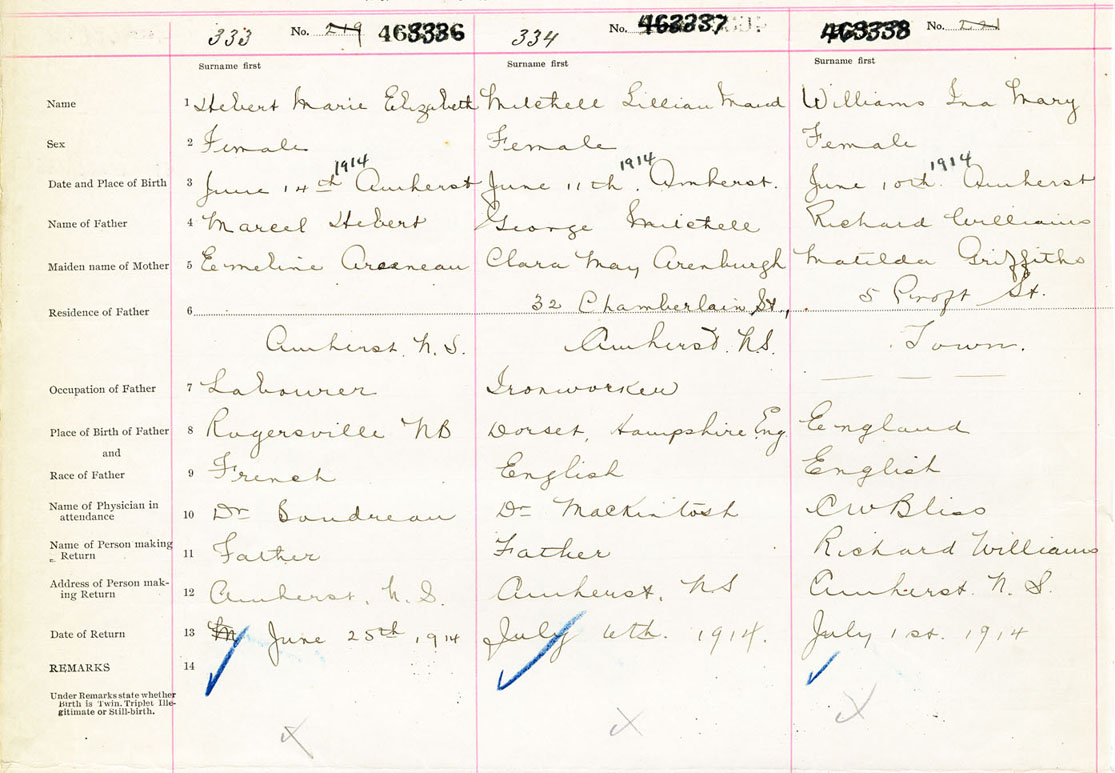 333 No. 219 463336 334 No. 463337 463338 No. 221
Surname first Surname first Surname first
Name 1 Hebert Marie Elizabeth Mitchell Lillian Maud Williams Ina Mary
Sex 2 Female Female Female
1914 1914 1914
Date and Place of Birth 3 June 14th Amherst June 11th. Amherst. June 10th. Amherst
Name of Father 4 Marcel Hebert George Mitchell Richard Williams
Maiden name of Mother 5 Emeline Arseneau Clara May Arenburgh Matilda Griffiths
Residence of Father 6 32 Chamberlain St., 5 Croft St.
Amherst. N. S. Amherst. N.S. Town.
Occupation of Father 7 Labourer Ironworker
Place of Birth of Father 8 Rogersville NB Dorset, Hampshire Eng England
and
Race of Father 9 French English English
Name of Physician in
attendance 10 Dr Boudreau Dr MacKintosh CW Bliss
Name of Person making
Return 11 Father Father Richard Williams
Address of Person mak-
ing Return 12 Amherst, N. S. Amherst, N.S Amherst. N. S.
Date of Return 13 June 25th 1914 July 6th. 1914. July 1st. 1914
REMARKS 14
Under Remarks state whether
Birth is Twin, Triplet Ille-
gitimate or Still-birth.